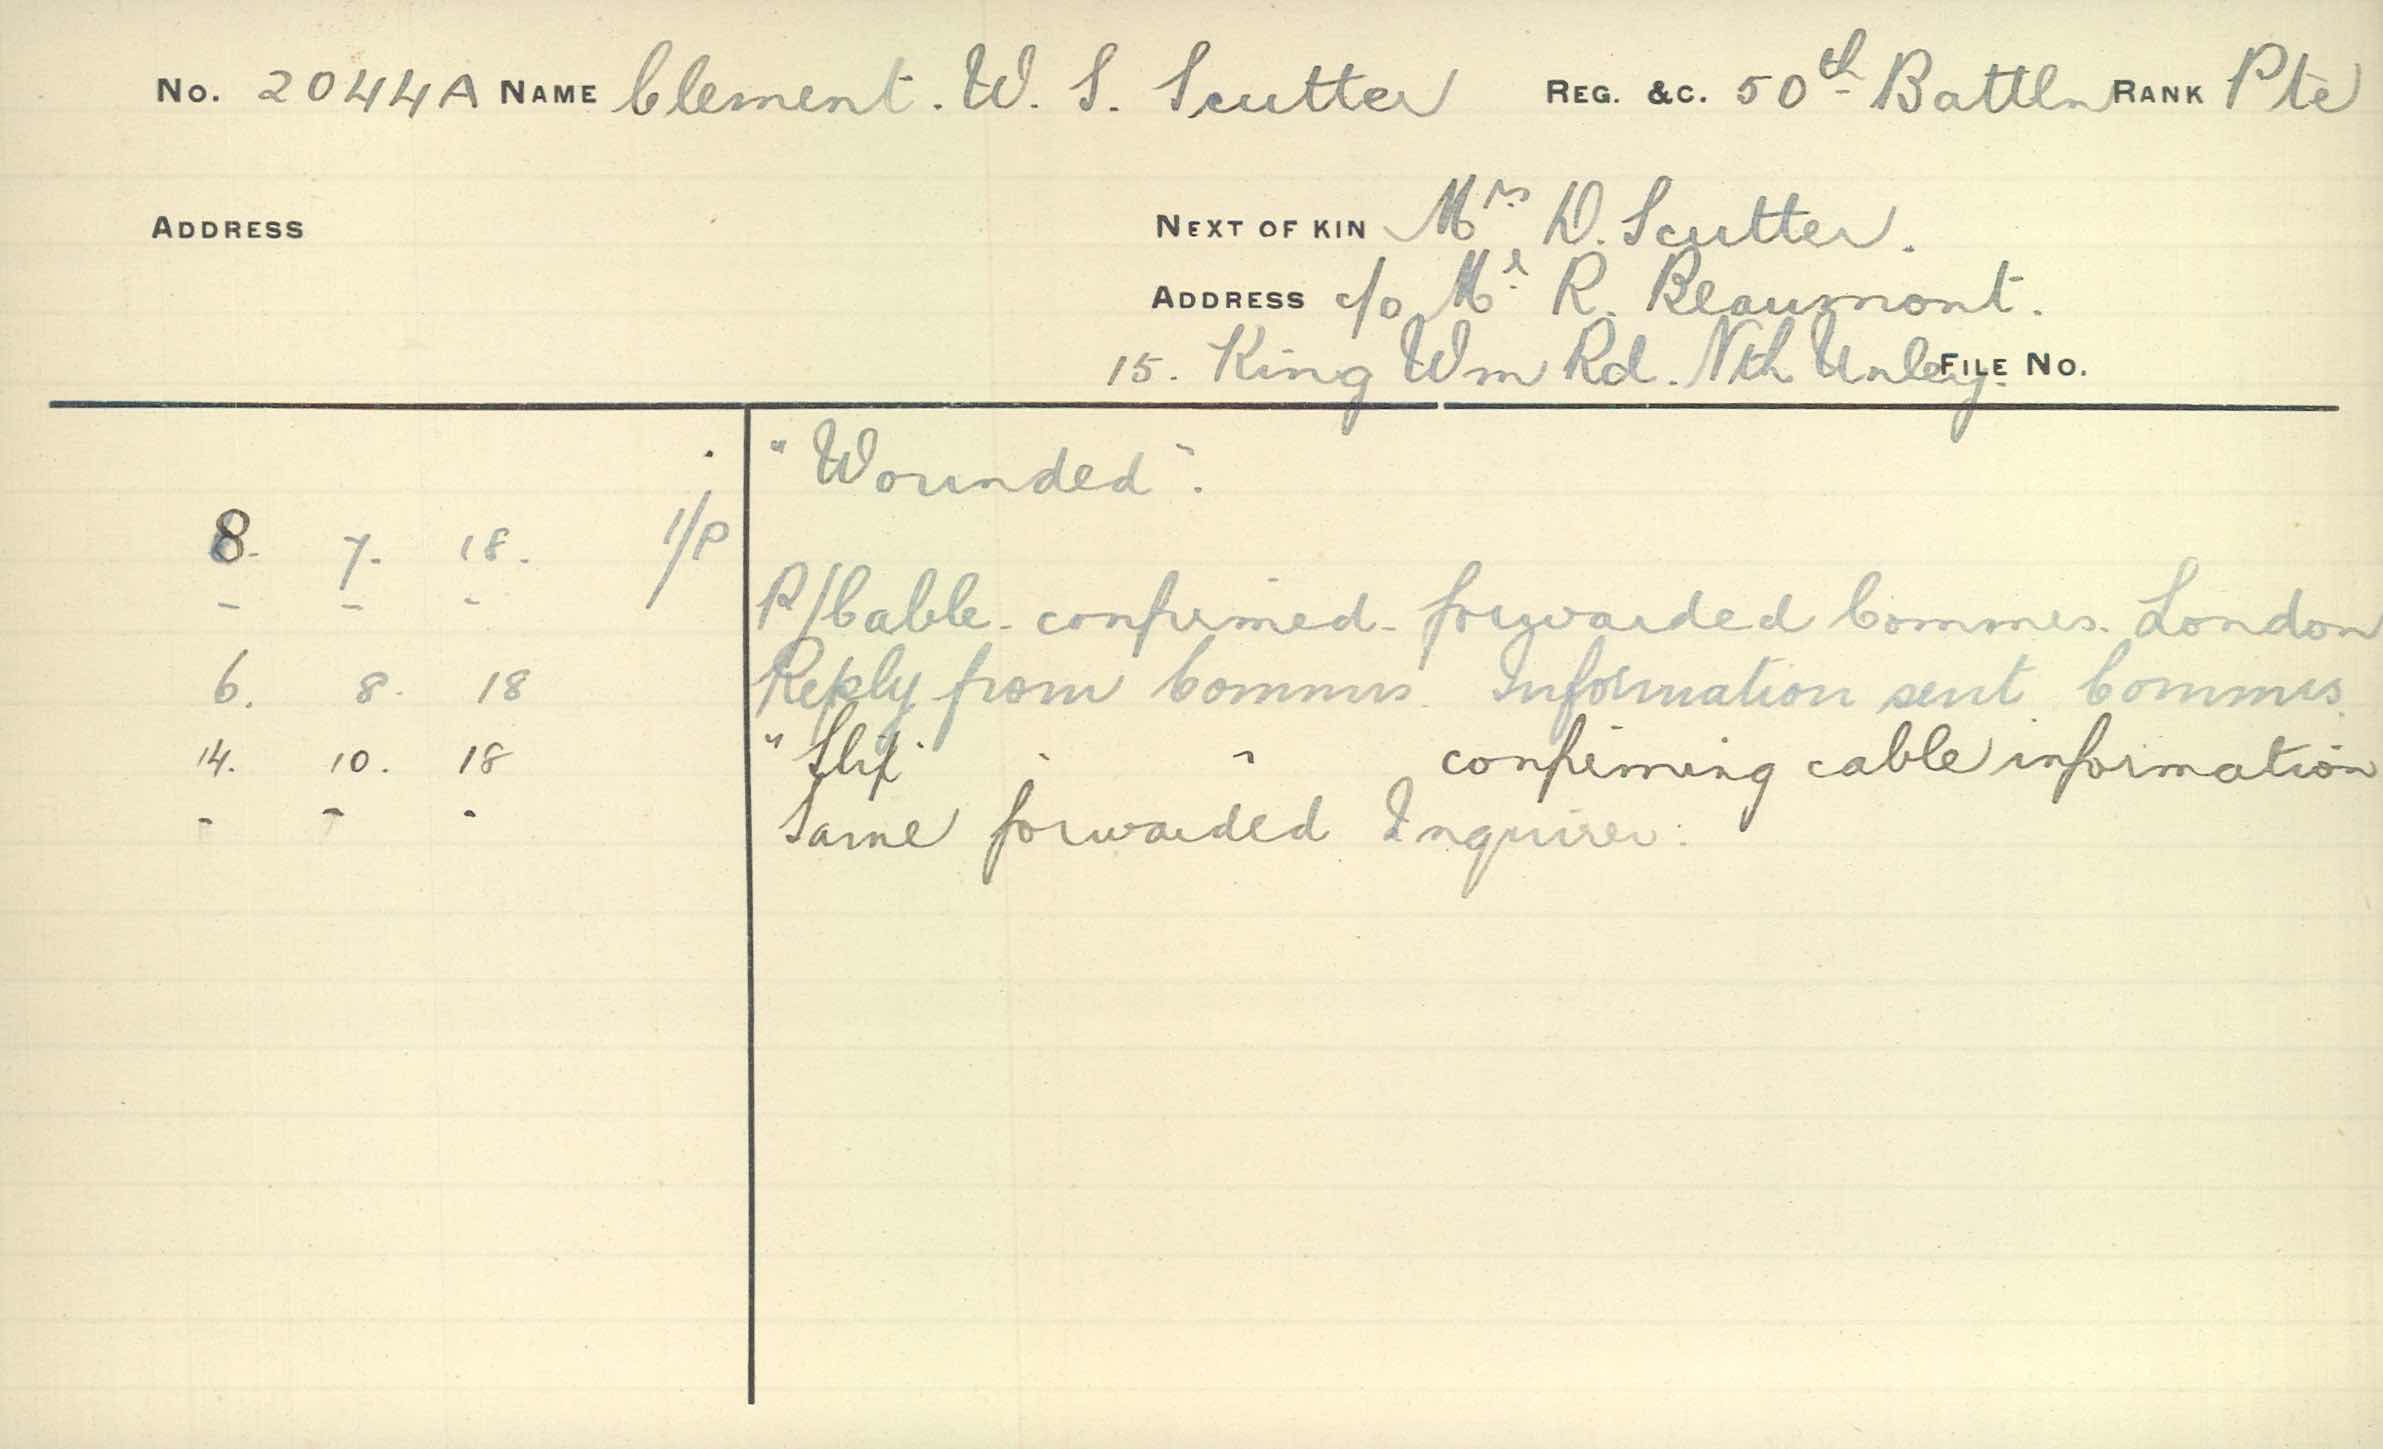 No. 2044A NAME Clement. W. S. Scutter REG. &C. 50th Battln RANK Pte
ADDRESS NEXT OF KIN Mrs D. Scutter.
ADDRESS c/o Mr R. Beaumont.
15. King Wm Rd. Nth Unley. FILE No.
"Wounded".
8. 7. 18. 1/P
" " " R/Cable confirmed forwarded Commis. London
6. 8. 18 Reply from Commis. Information sent Commis.
14. 10. 18 "Slip " " confirming cable information
" " " Same forwarded Inquirer.